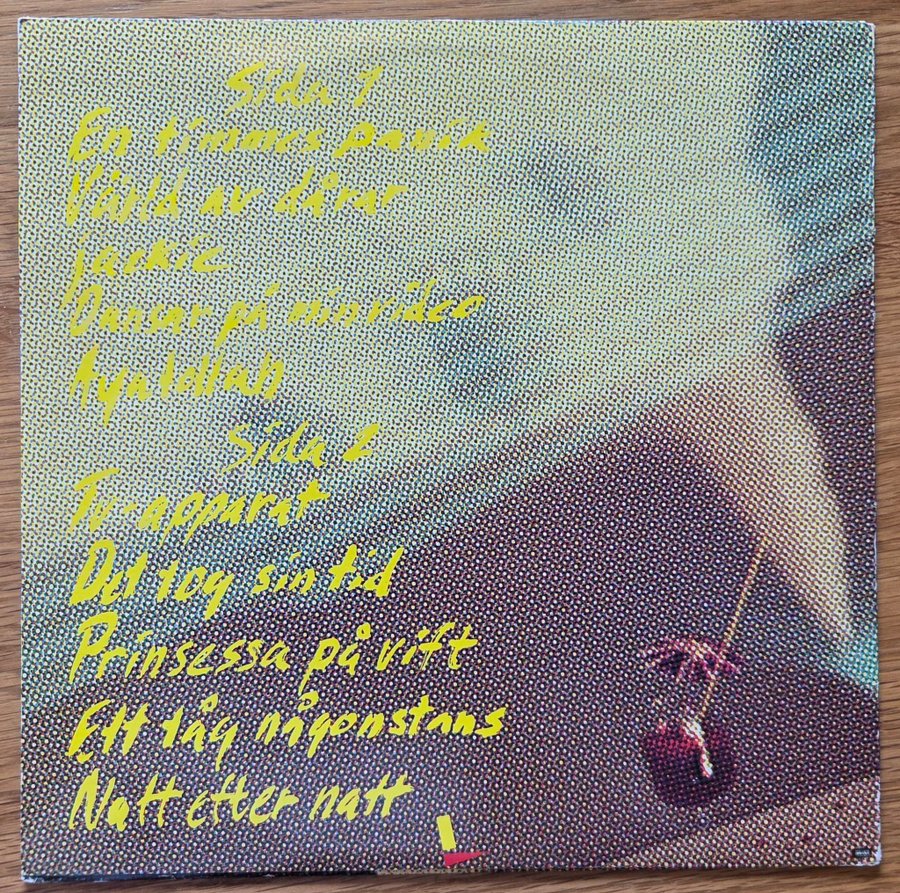 Sida 1
En timmes panik
Värld av dårar
Jackie
Dansar på min video
Ayatollah
Sida 2
Tv-apparat
Det tog sin tid
Prinsessa på vift
Ett tåg någonstans
Natt efter natt